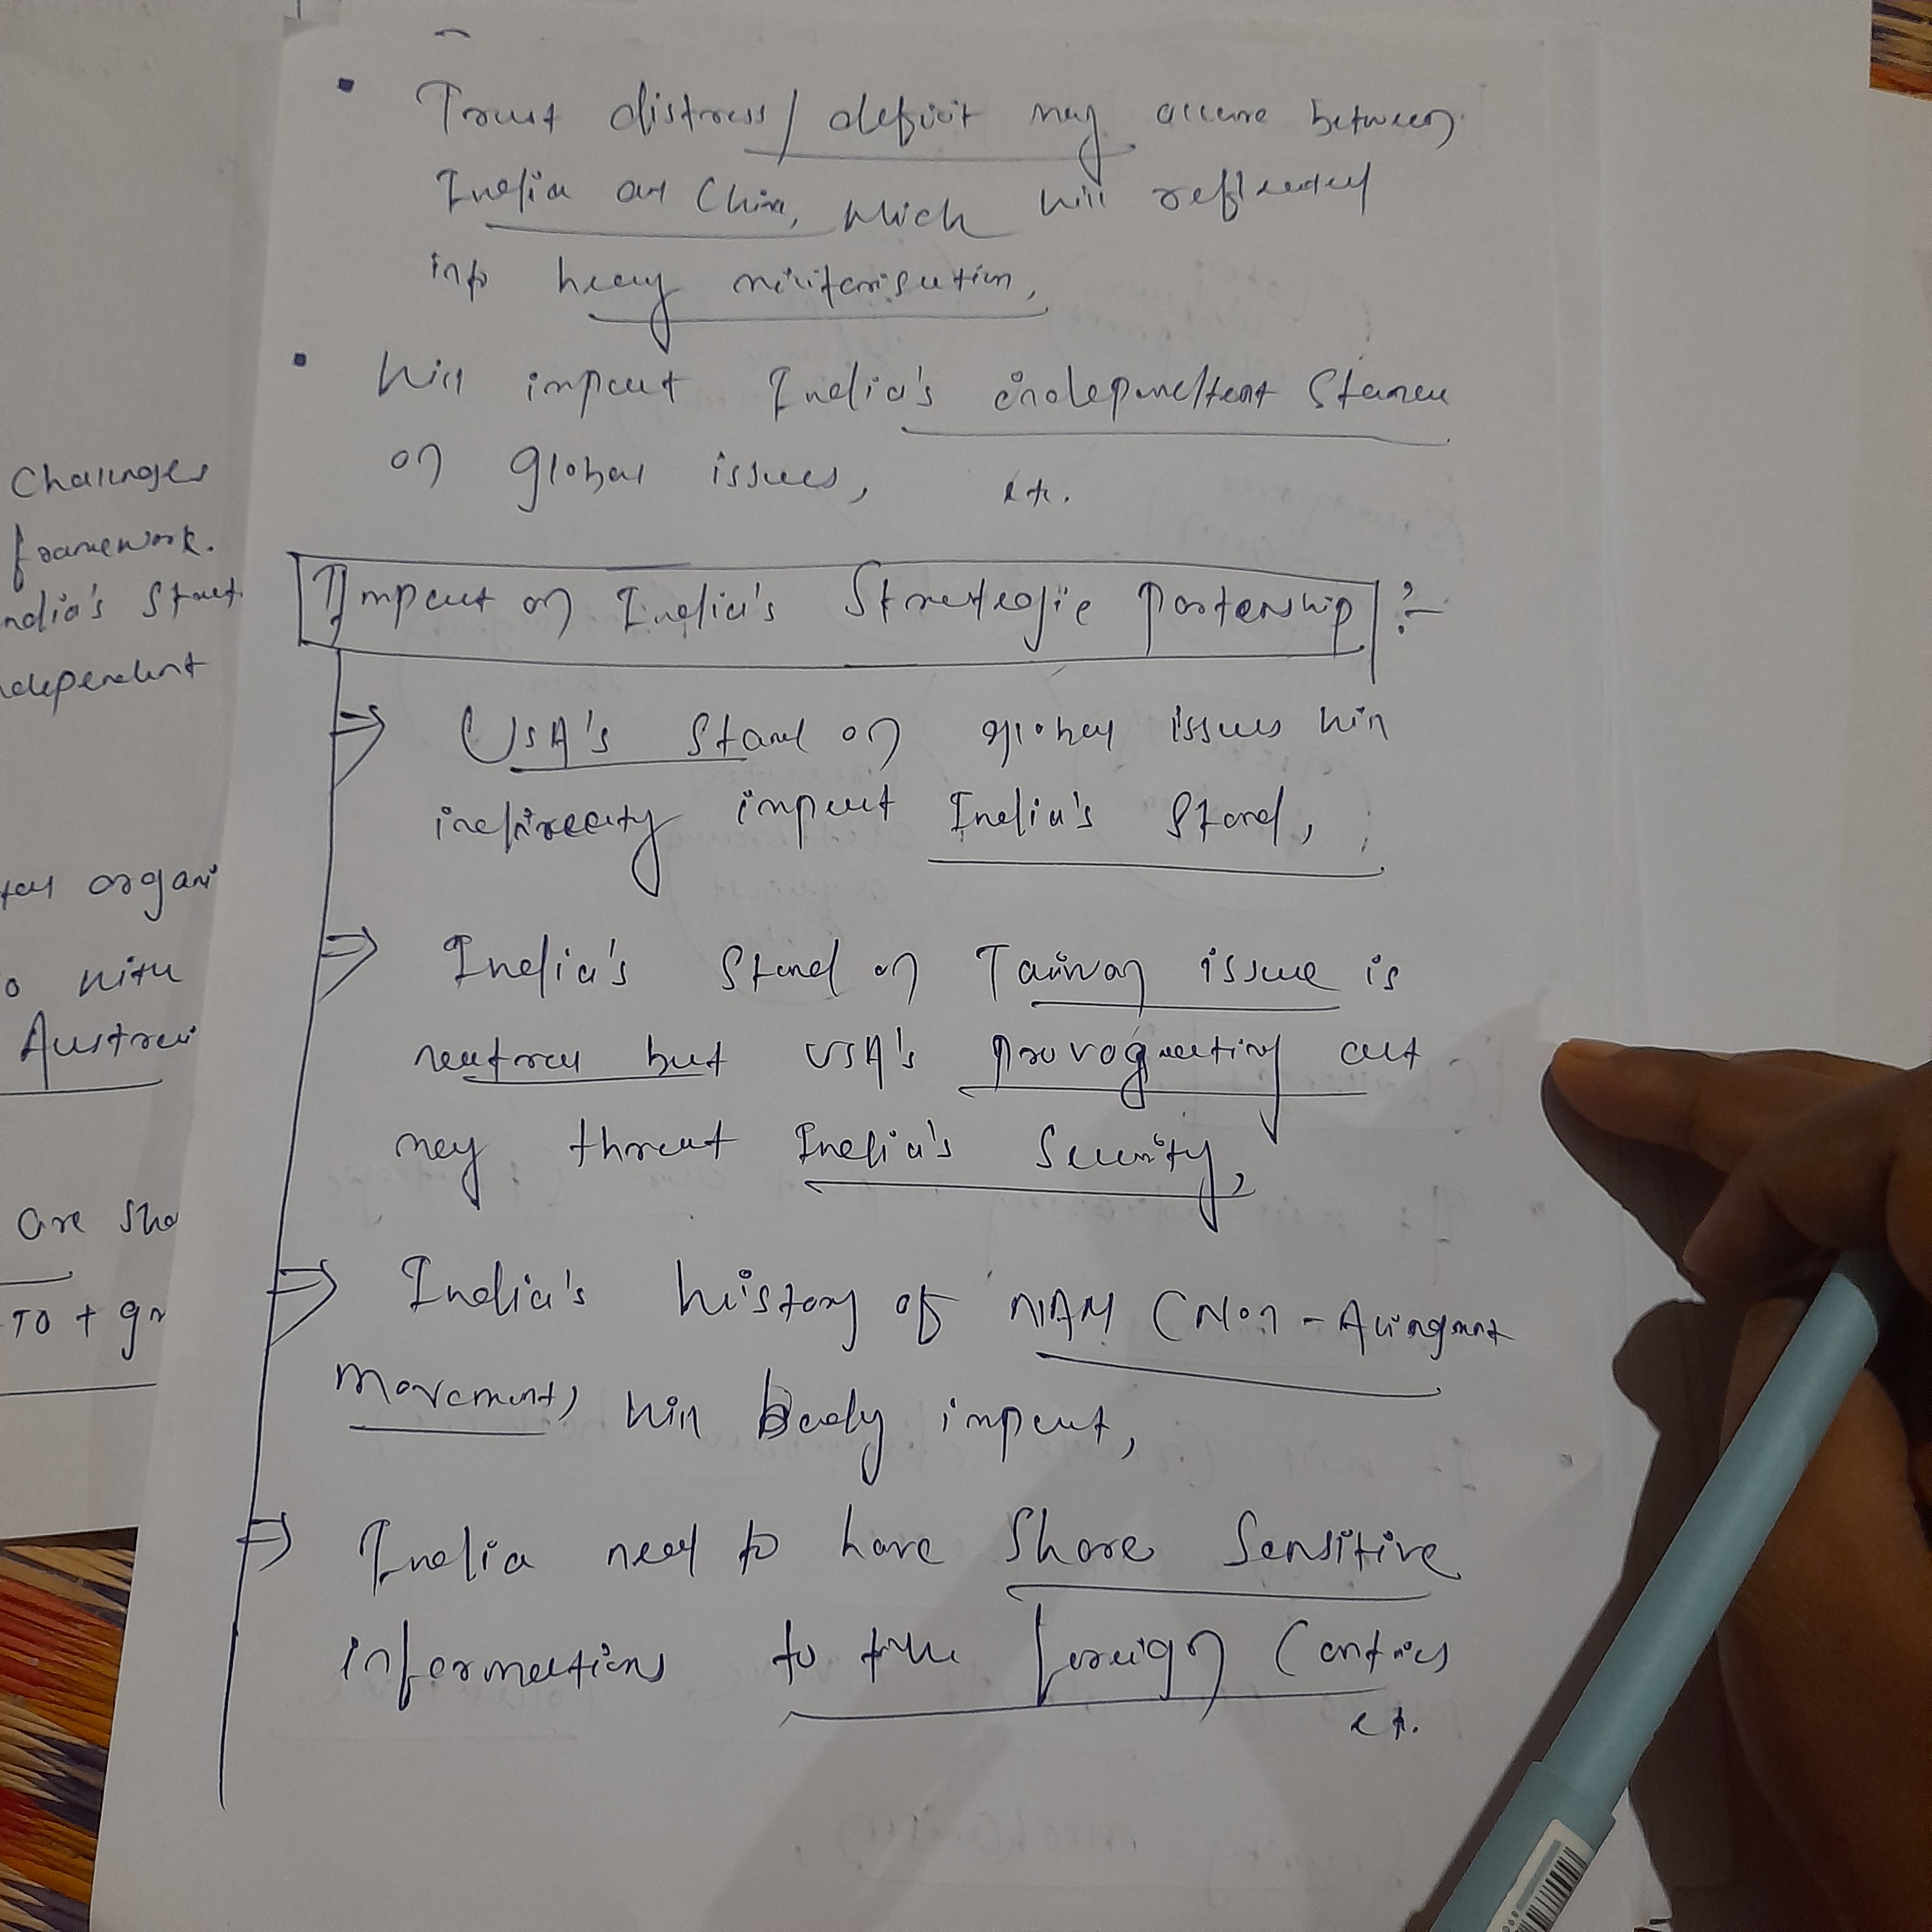 Trust distress/ deficit may occure between
India and China, which will reflected
into heavy militarisation,
Will impact India's independent stance
on global issues, etc.
Impact on India's Strategic partenship :-
USA's stand on global issues will
indirectly impact India's stand,
India's stand on Taiwan issue is
neutral but USA's provoguating act
may threat India's security,
India's history of NAM (Non-Alingment
Movement) will badly impact,
India need to have share sensitive
informations to the foreign contries
etc.
Challnges
framework.
ndia's strat
ndependent
organi
with
Austrai
are sha
TO + gr